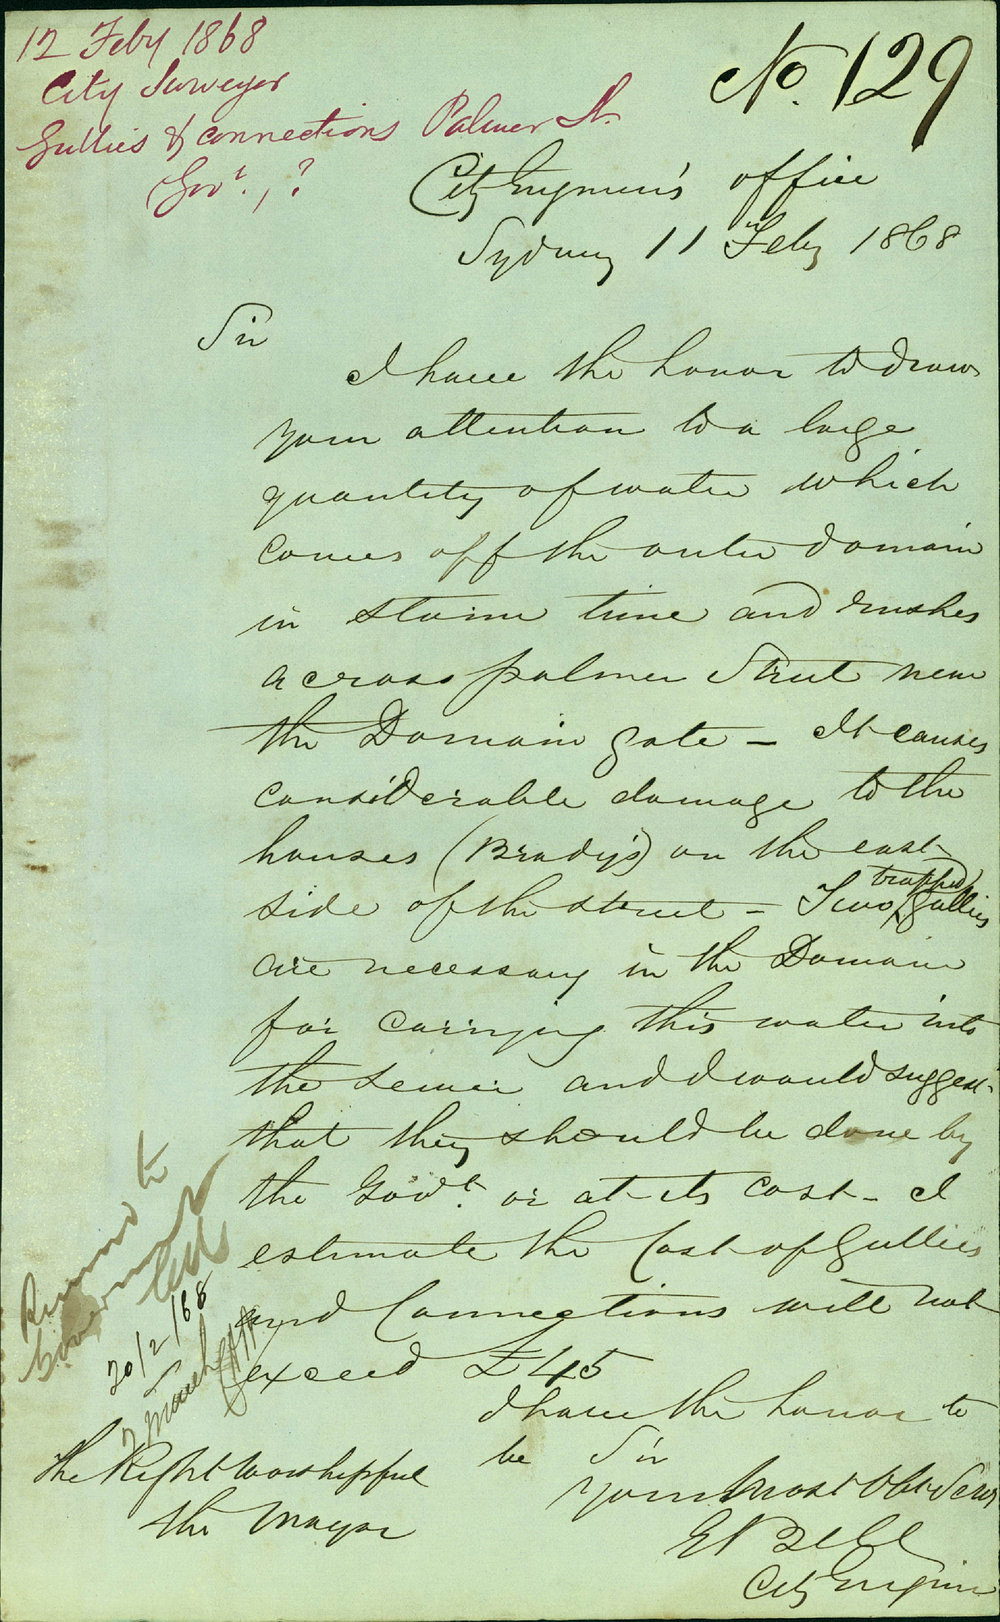 12 Feby 1868
City Surveyor
Gullies & connections Palmer St.
Govt., ?
No. 129
City Engineer's office
Sydney 11 Feby 1868
Sir
I have the honor to draw
your attention to a large
quantity of water which
comes off the outer domain
in storm time and rushes
across palmer Street near
the Domain gate – It causes
considerable damage to the
houses (Brady's) on the east
side of the street – Two trapped gullies
are necessary in the Domain
for carrying this water into
the sewer and I would suggest
that they should be done by
the Govt. or at its cost – I
estimate the Cost of Gullies
and Connections will not
exceed £45
I have the honor to
be Sir
your most Obt Servt
E Bell
City Engineer
The Right Worshipful
the Mayor
Government
20/2/68
March